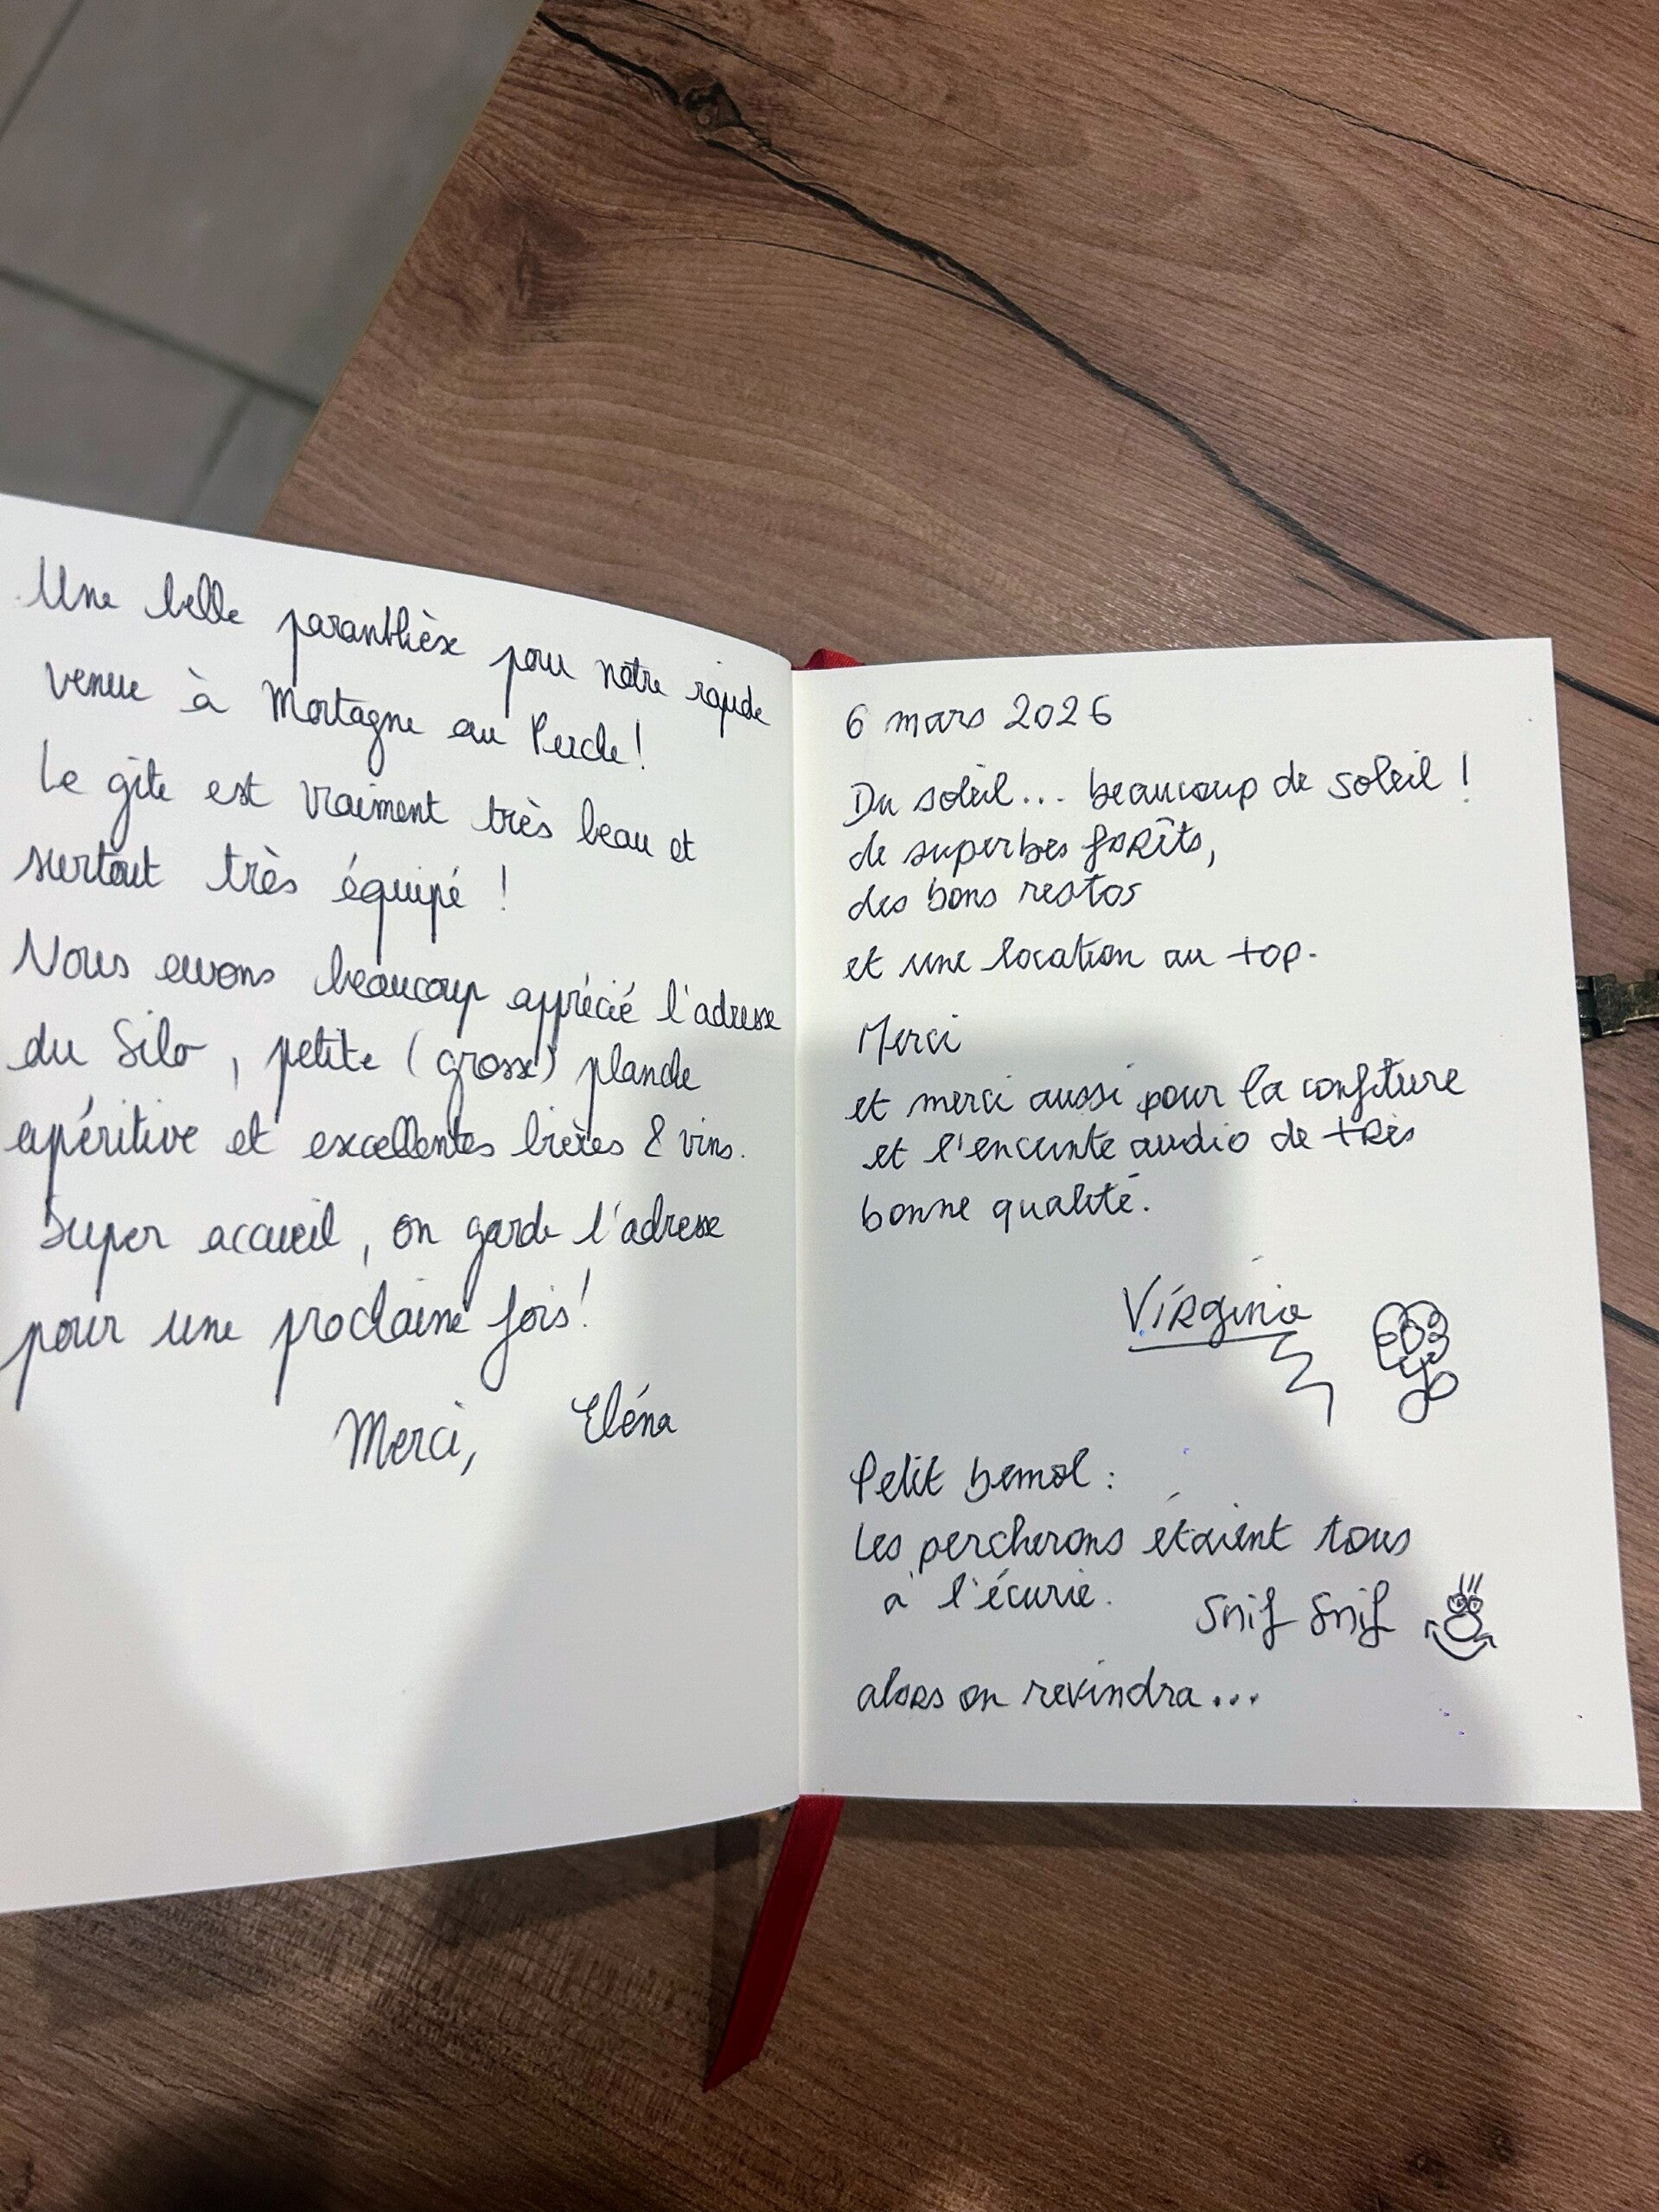 Une belle paranthèse pour notre rapide
venue à Mortagne au Perche !
Le gîte est vraiment très beau et
surtout très équipé !
Nous avons beaucoup apprécié l'adresse
du Silo, petite (grosse) planche
apéritive et excellentes bières & vins.
Super accueil, on garde l'adresse
pour une prochaine fois !
Merci, Eléna
6 mars 2026
Du soleil... beaucoup de soleil !
de superbes forêts,
des bons restos
et une location au top.
Merci
et merci aussi pour la confiture
et l'enceinte audio de très
bonne qualité.
Virginie
Petit bemol :
Les percherons étaient tous
à l'écurie.
Snif Snif
alors on reviendra...